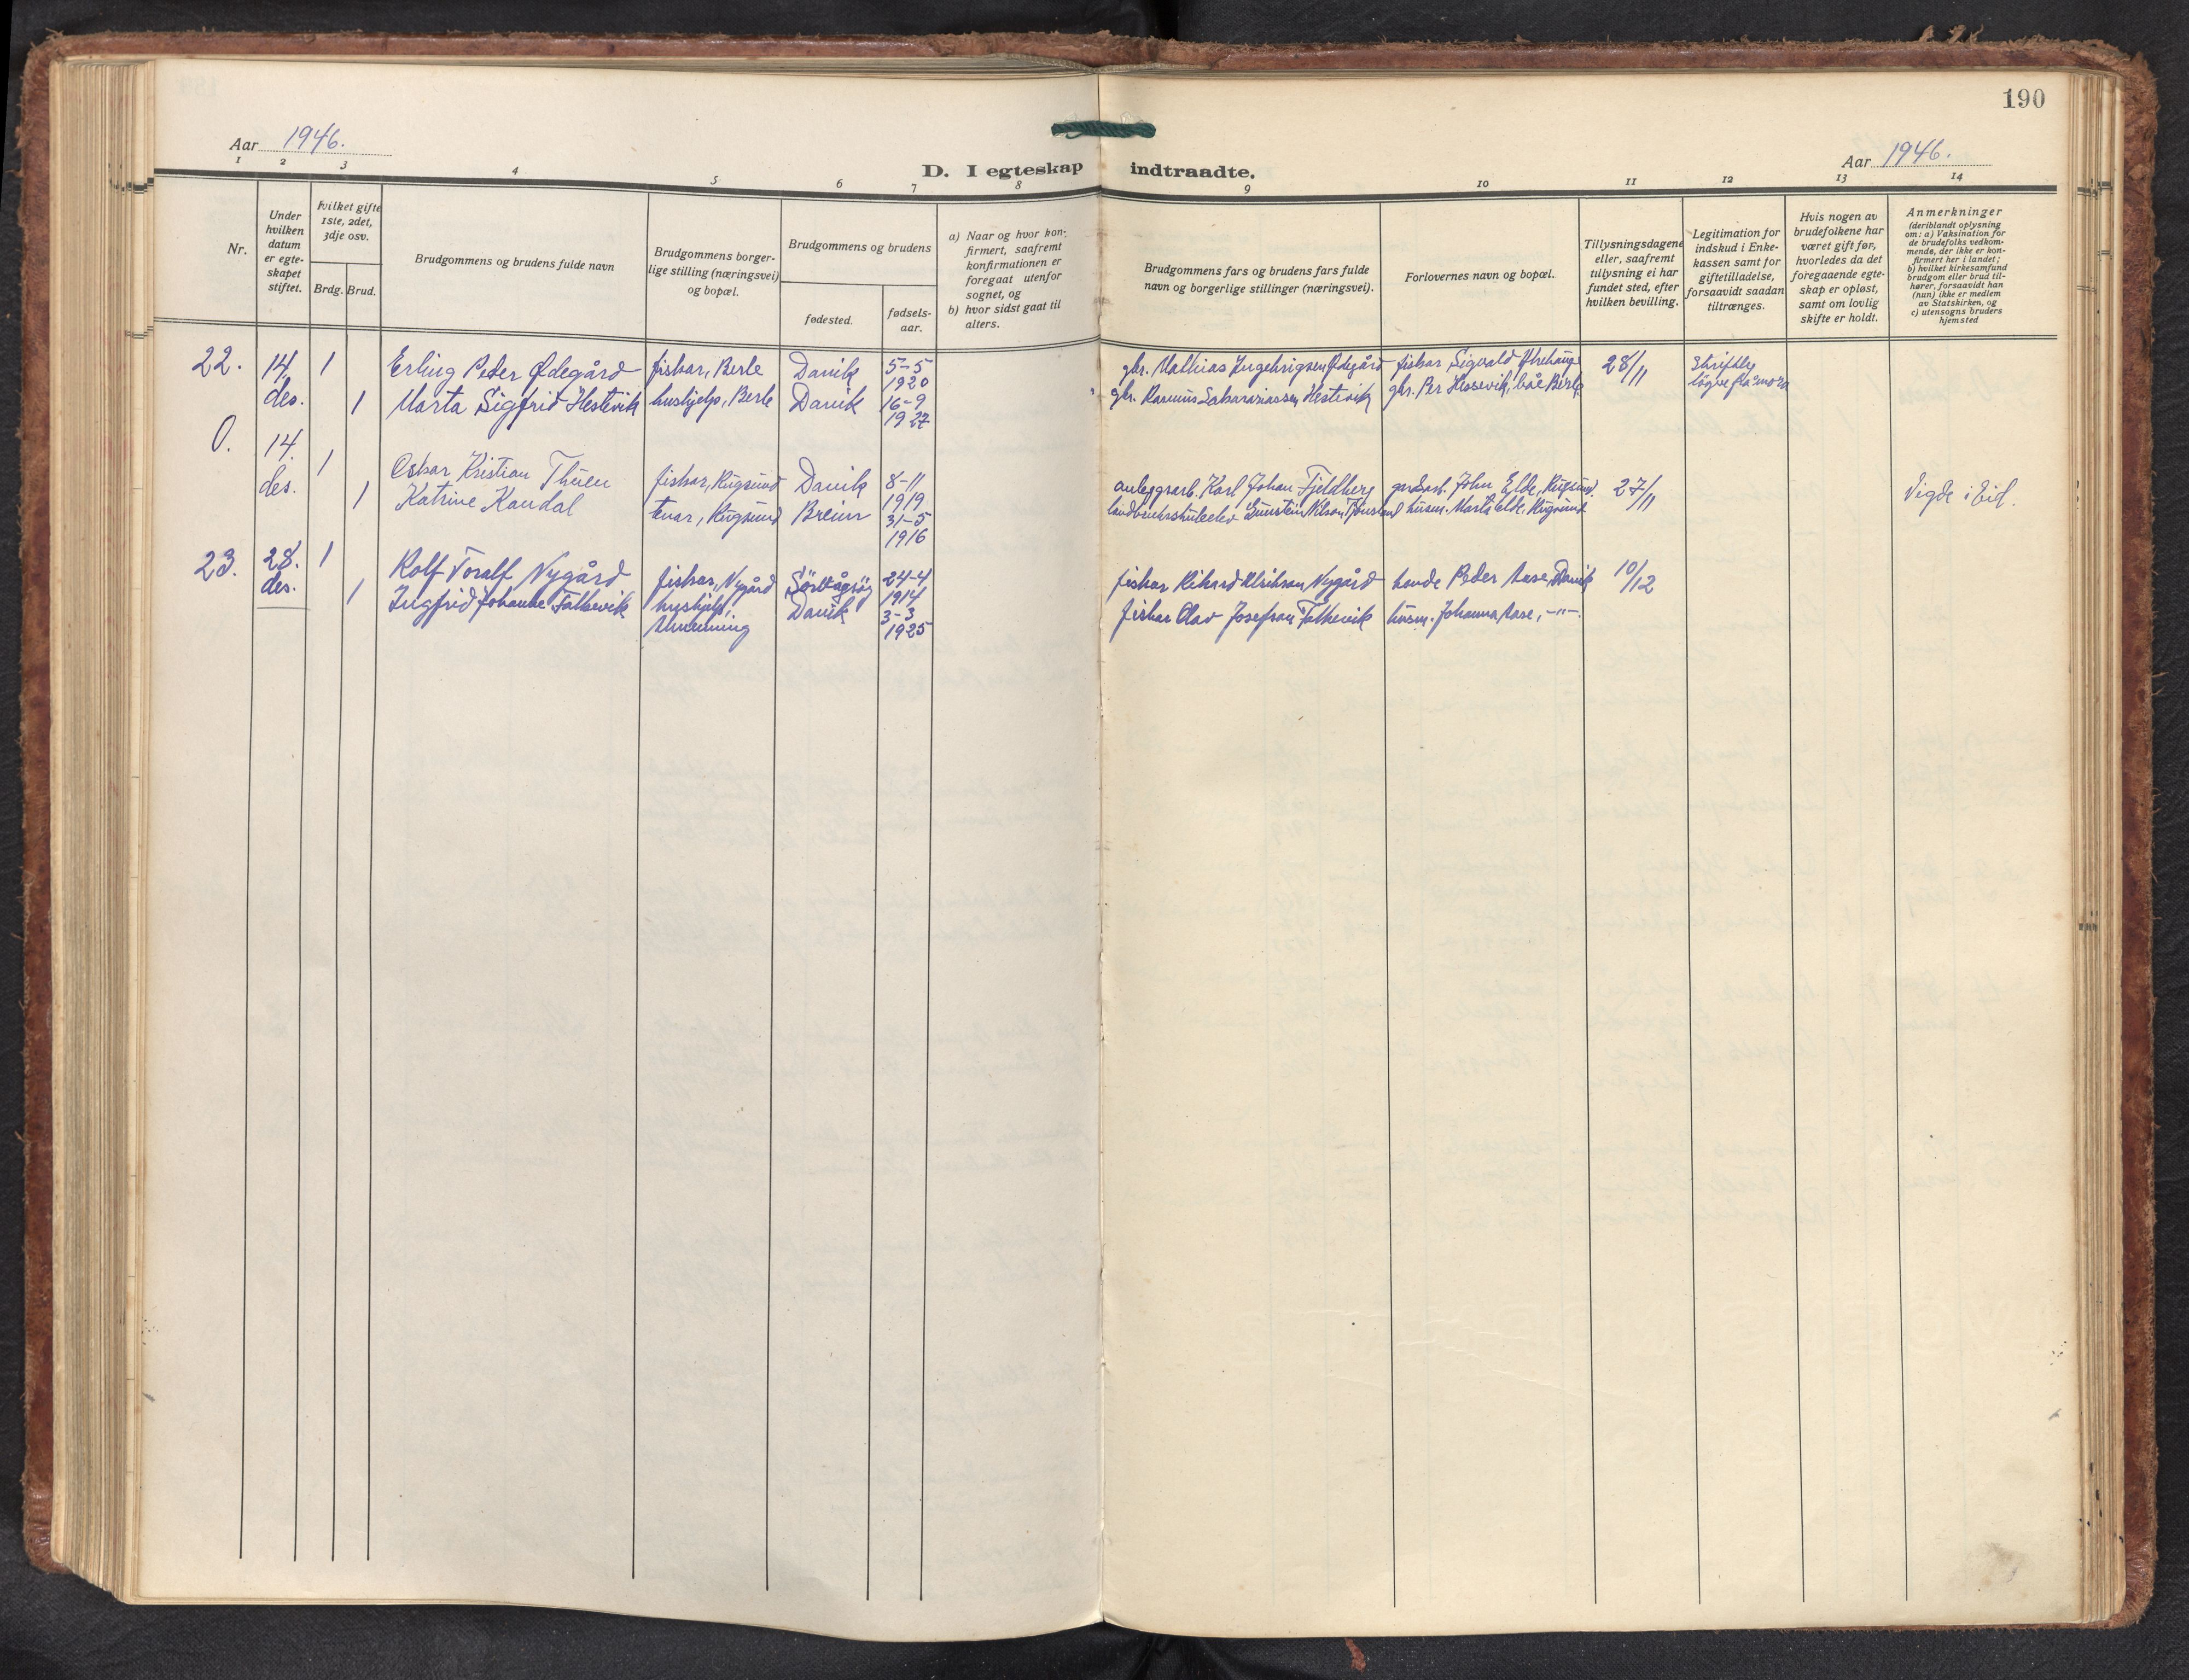 190
Aar 1946.
Aar 1946.
D. I egteskap indtraadte.
1 2 3 4 5 6 7 8 9 10 11 12 13 14
Nr.
Under
hvilken
datum
er egte-
skapet
stiftet.
Hvilket gifte
1ste, 2det,
3dje osv.
Brdg. Brud.
Brudgommens og brudens fulde navn
Brudgommens borger-
lige stilling (næringsvei)
og bopæl.
Brudgommens og brudens
fødested.
fødsels-
aar.
a) Naar og hvor kon-
firmert, saafremt
konfirmationen er
foregaat utenfor
sognet, og
b) hvor sidst gaat til
alters.
Brudgommens fars og brudens fars fulde
navn og borgerlige stillinger (næringsvei).
Forlovernes navn og bopæl.
Tillysningsdagene
eller, saafremt
tillysning ei har
fundet sted, efter
hvilken bevilling.
Legitimation for
indskud i Enke-
kassen samt for
giftetilladelse,
forsaavidt saadan
tiltrænges.
Hvis nogen av
brudefolkene har
været gift før,
hvorledes da det
foregaaende egte-
skap er opløst,
samt om lovlig
skifte er holdt.
Anmerkninger
(deriblandt oplysning
om: a) Vaksination for
de brudefolks vedkom-
mende, der ikke er kon-
firmert her i landet;
b) hvilket kirkesamfund
brudgom eller brud til-
hører, forsaavidt han
(hun) ikke er medlem
av Statskirken, og
c) utensogns bruders
hjemsted
22. 14. 1 Erling Peter Ødegård fiskar, Berle Davik 5-5 1920 gbr. Mathias Ingebrigsen Ødegård fiskar Sigvald 28/11 Skriftleg
des. 1 Marta Sigfrid Hestevik hushjelp, Berle Davik 16-9 1927 gbr. Rasmus Sakarariassen Hestevik gbr. Per Hessevik, båe Berle løyve frå
0. 14. 1 Oskar Kristian Thuen fiskar, Rugsund Davik 8-11 1919 anleggsarb. Karl Johan Fjeldberg John Elde, Rugsund. 27/11 Vigde i Eid.
des. 1 Katrine Kandal tenar, Rugsund Breim 31-5 1916 landbruksskuleelev husm. Marta Elde, Rugsund
23. 28. 1 Rolf Toralf Nygård fiskar, Nygård Sørvågsøy 24-4 1914 fiskar Rikard Nygård Peder Aase, Davik 10/12
des. 1 Ingfrid Johanne Falkevik hushjelp, Davik 3-3 1925 fiskar Olav Josefson Falkevik husm. Johanna Aase, -"-